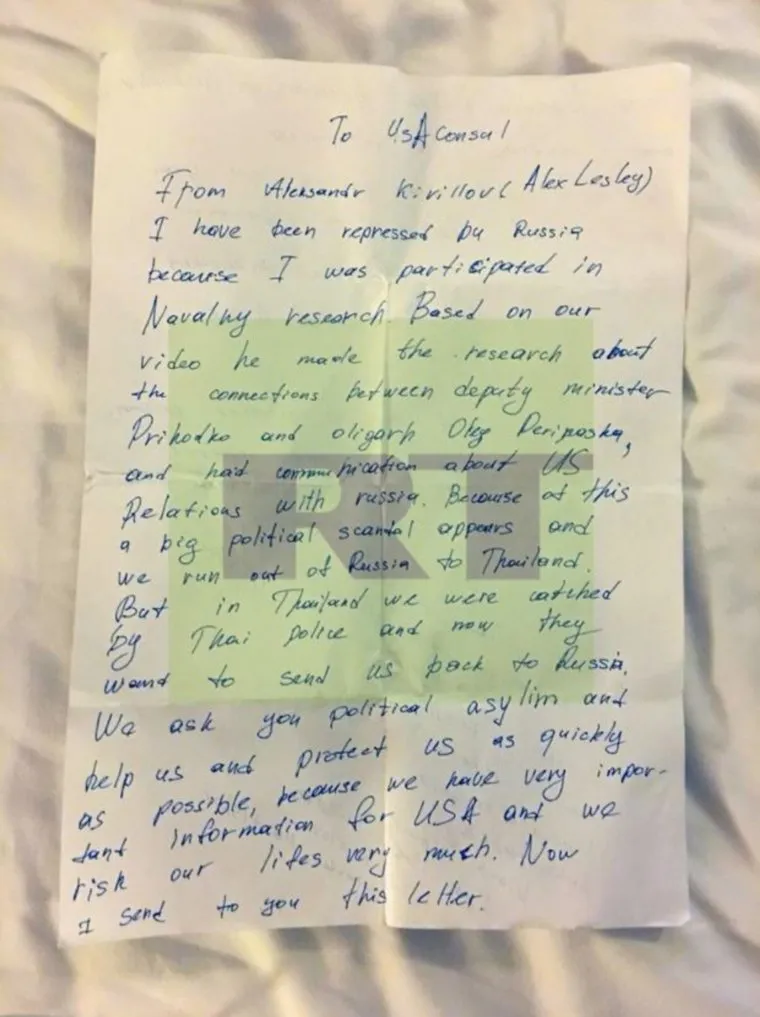 To USA Consul
From Aleksandr Kirillov (Alex Lesley)
I have been repressed by Russia
because I was participated in
Navalny research. Based on our
video he made the research about
the connections between deputy minister
Prihodko and oligarh Oleg Deripaska,
and had communication about US
Relations with russia. Because of this
a big political scandal appears and
we run out of Russia to Thailand.
But in Thailand we were catched
by Thai police and now they
wand to send us back to Russia.
We ask you political asylim and
help us and protect us as quickly
as possible, because we have very impor-
tant information for USA and we
risk our lifes very much. Now
I send to you this letter.
RT